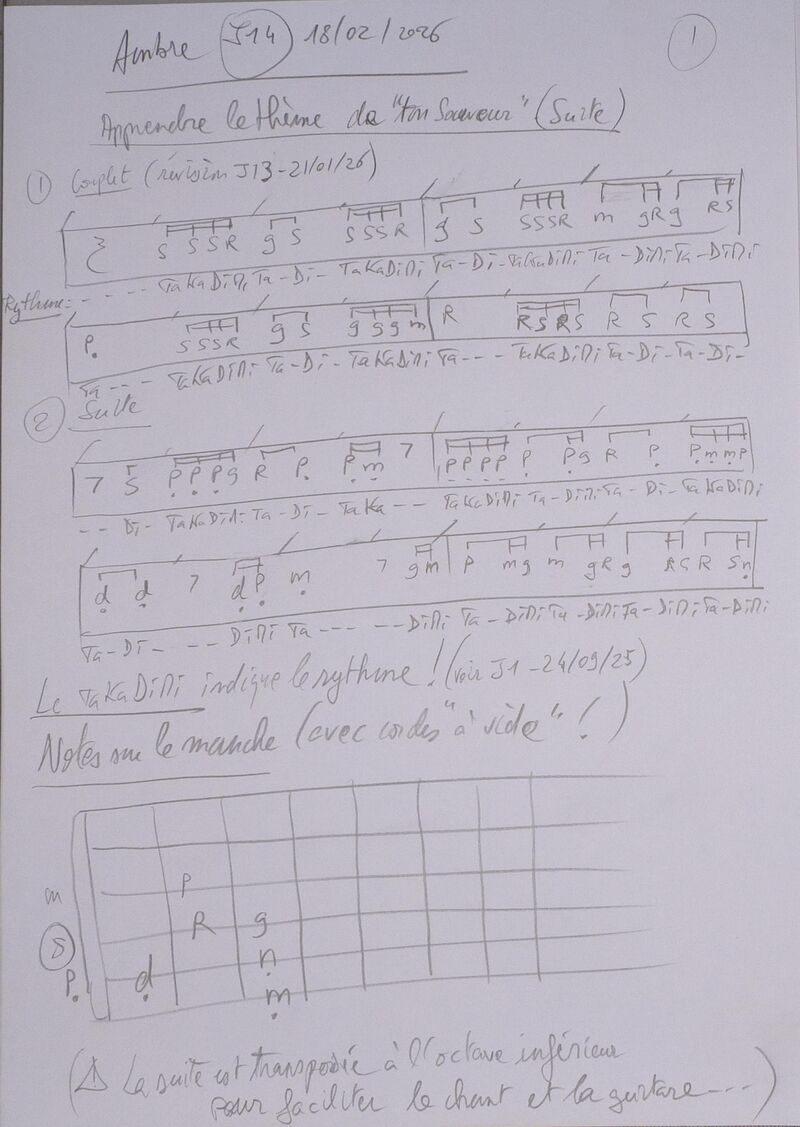 Ambre J14 18/02/2026 1
Apprendre le thème de "ton Sauveur" (Suite)
1 Couplet (révision J13-21/01/26)
S SSSR g S SSSR g S SSSR m gRg RS
Rythme: - - - - TaKaDiNi Ta-Di- TaKaDiNi Ta-Di- TaKaDiNi Ta-DiNi Ta-DiNi
P SSSR g S gSgm R RSRS R S R S
Ta--- TaKaDiNi Ta-Di- TaKaDiNi Ta--- TaKaDiNi Ta-Di- Ta-Di-
2 Suite
7 S PPPg R P Pm 7 PPPP P Pg R P Pmmp
-- Di- TaKaDiNi Ta-Di- TaKa-- TaKaDiNi Ta-DiNi Ta-Di- TaKaDiNi
d d 7 dP m 7 gm P mg m gR g RS R Sn
Ta-Di- -- DiNi Ta--- --DiNi Ta-DiNi Ta-DiNi Ta-DiNi Ta-DiNi
Le TaKaDiNi indique le rythme ! (voir J1-24/09/25)
Notes sur le manche (avec cordes "à vide" !)
P
m
R g
S
n
P d
m
(⚠ La suite est transposée à l'octave inférieur
pour faciliter le chant et la guitare ---)